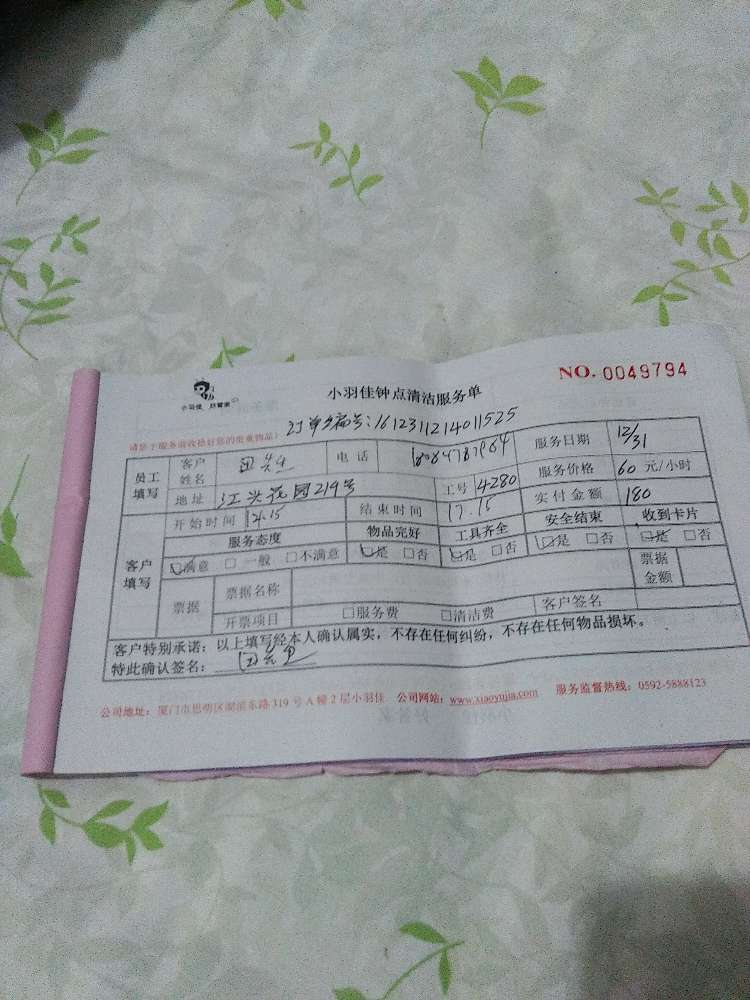 NO. 0049794
小羽佳 好管家
小羽佳钟点清洁服务单
订单编号:1612311214011525
请您于服务前收拾好您的贵重物品!
员工填写 客户姓名 电话 服务日期 12/31
地址 江头花园219号 工号 4280 服务价格 60 元/小时
开始时间 14.15 结束时间 17.15 实付金额 180
客户填写 服务态度 物品完好 工具齐全 安全结束 收到卡片
☑满意 □一般 □不满意 ☑是 □否 ☑是 □否 ☑是 □否 ☑是 □否
票据 票据名称 票据金额
开票项目 □服务费 □清洁费 客户签名
客户特别承诺:以上填写经本人确认属实,不存在任何纠纷,不存在任何物品损坏。
特此确认签名:
公司地址:厦门市思明区湖滨东路319号A幢2层小羽佳 公司网站:www.xiaoyujia.com 服务监督热线:0592-5888123